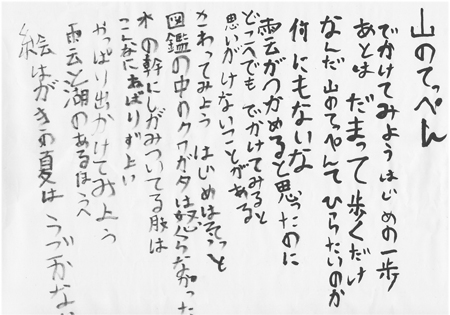 山のてっぺん
でかけてみよう はじめの一歩
あとは だまって 歩くだけ
なんだ 山のてっぺんて ひらたいのか
何にもないな
雲がつかめると思ったのに
どこへでも でかけてみると
思いがけないことがある
さわってみよう はじめはそっと
図鑑の中のクワガタは怒らなかった
木の幹にしがみついてる脚は
こんなに ねばりづよい
やっぱり出かけてみよう
雨雲と湖のあるほうへ
絵はがきの夏は うごかない